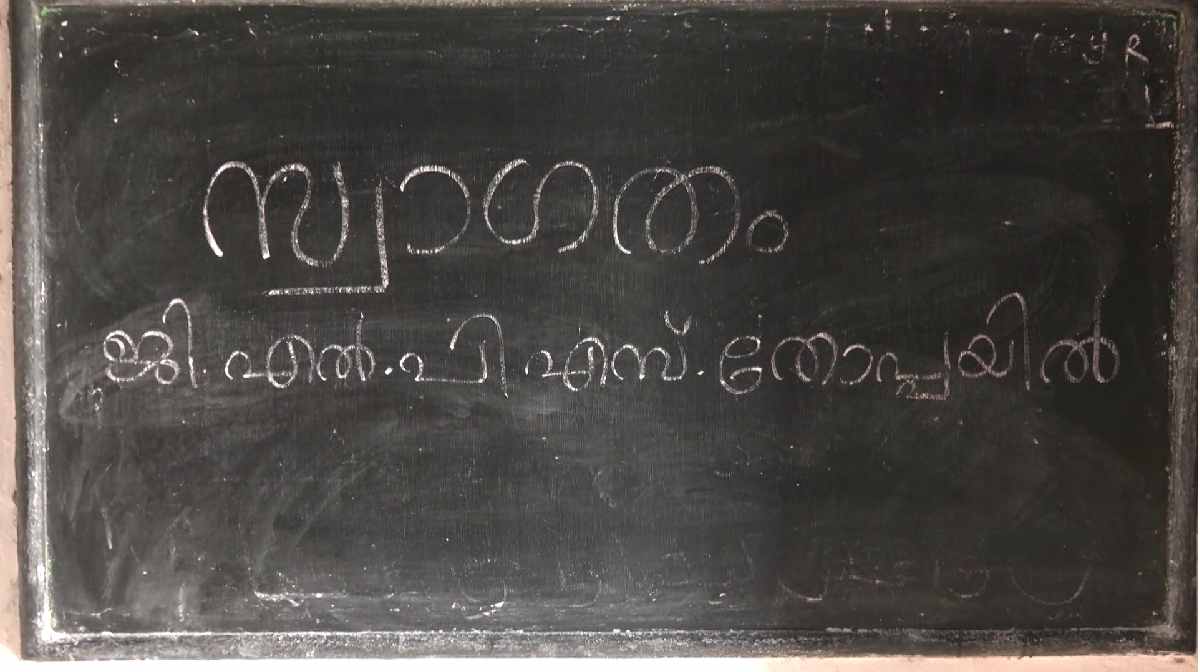 സ്വാഗതം
ജി.എൽ.പി എസ്.തോപ്പയിൽ